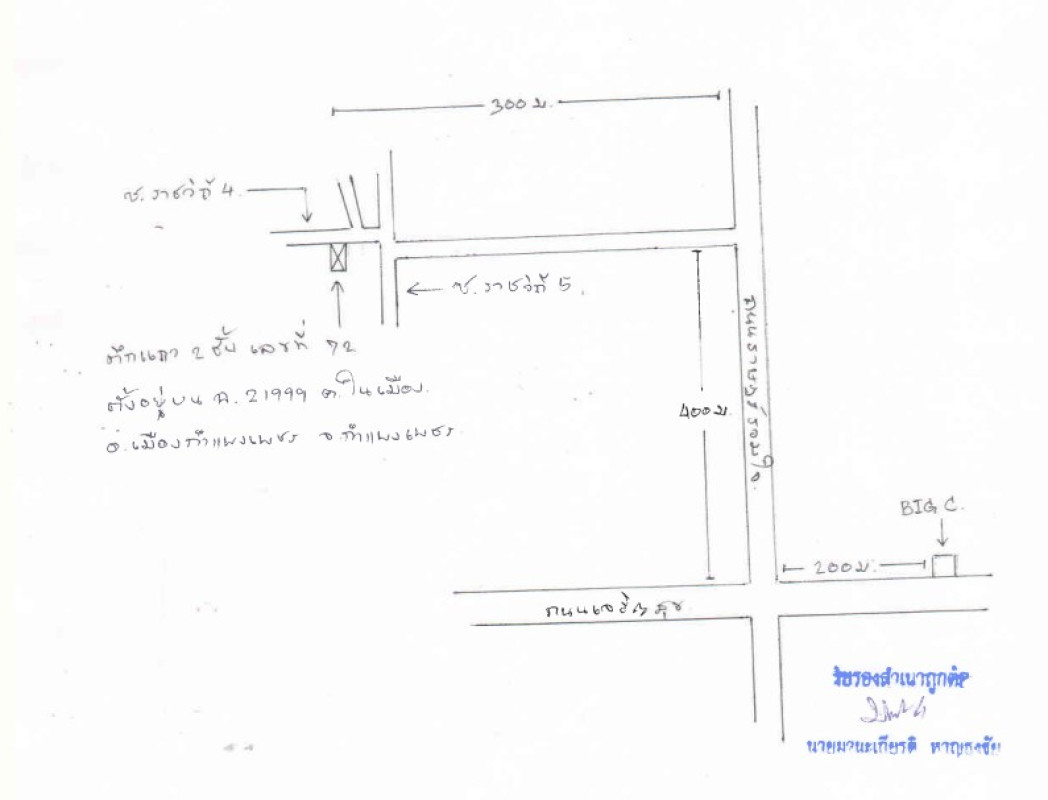 300 ม.
ซ. ราชวิถี 4.
ซ. ราชวิถี 5.
ตึกแถว 2 ชั้น เลขที่ 72
ตั้งอยู่บน ฉ. 21999 ต. ในเมือง.
อ. เมืองกำแพงเพชร จ. กำแพงเพชร.
ถนนราษฎร์รวมใจ.
400 ม.
BIG C.
200 ม.
ถนนเจริญสุข
รับรองสำเนาถูกต้อง
นายมานะเกียรติ หาญธงชัย